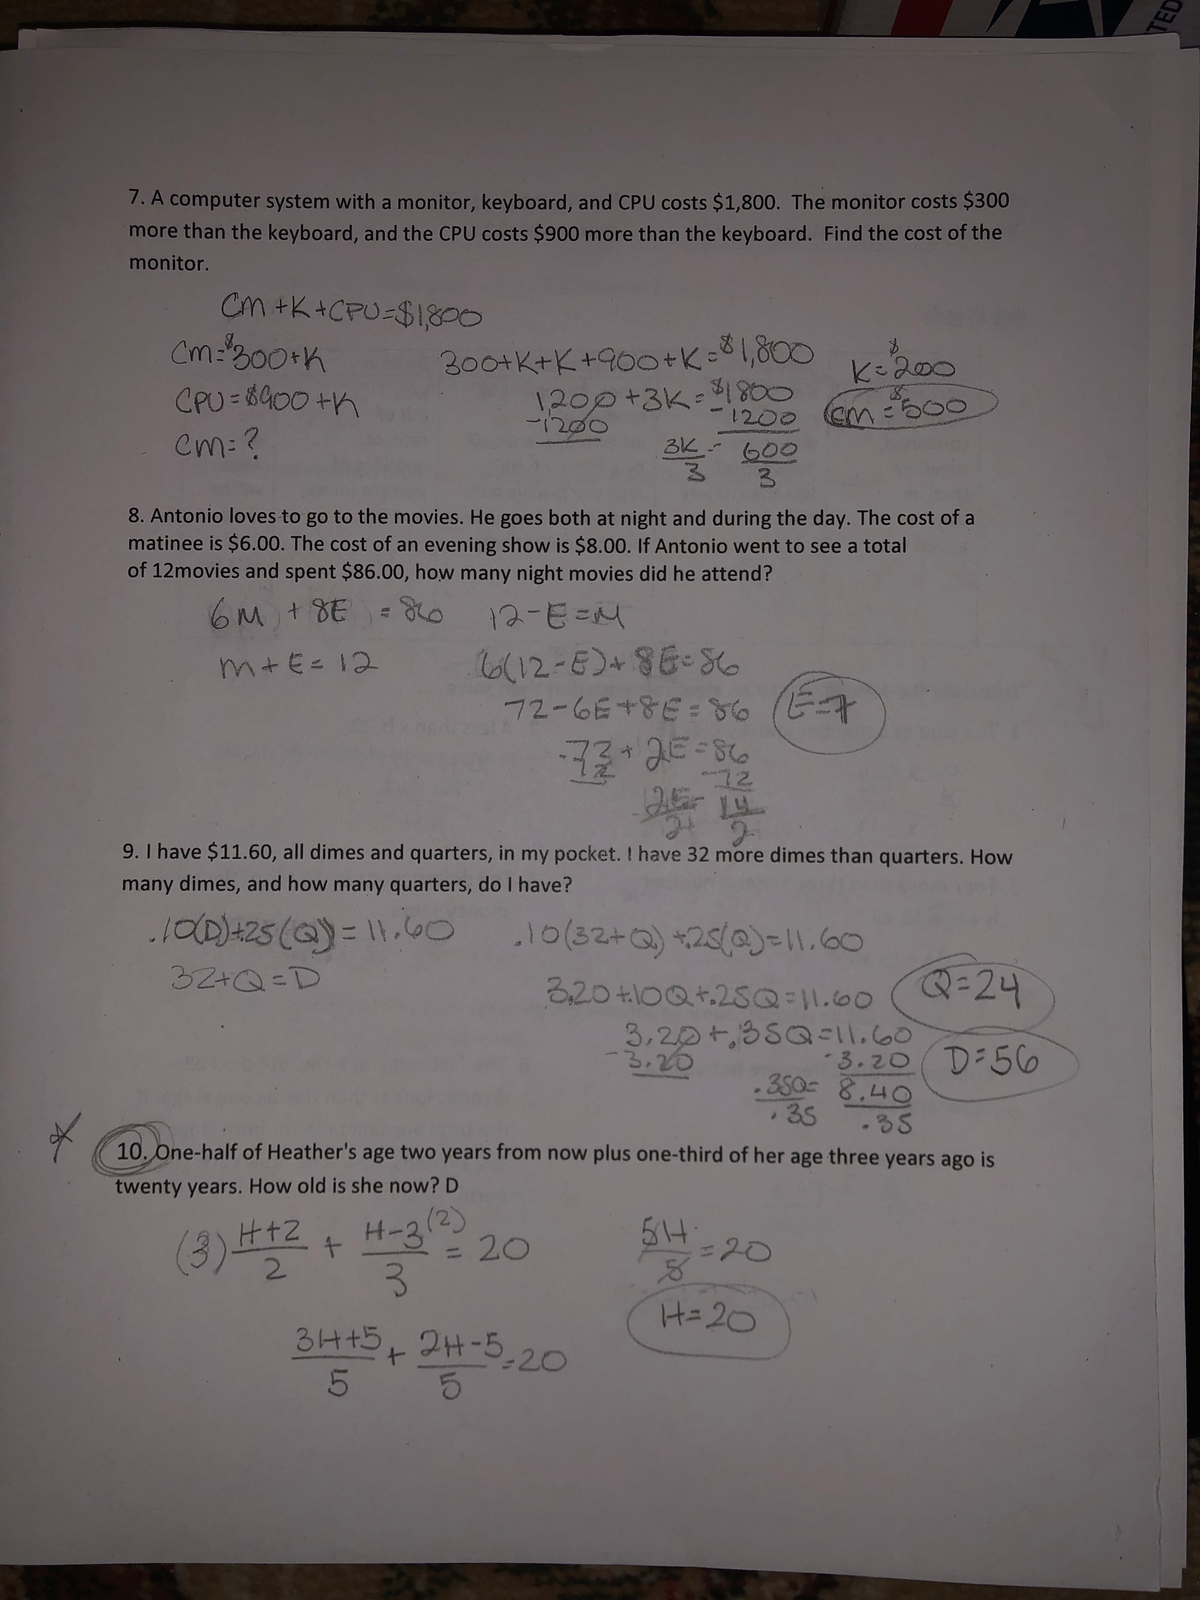 TED
7. A computer system with a monitor, keyboard, and CPU costs $1,800. The monitor costs $300
more than the keyboard, and the CPU costs $900 more than the keyboard. Find the cost of the
monitor.
CM + K + CPU = $1,800
CM = $300 + K
CPU = $900 + K
CM = ?
300 + K + K + 900 + K = $1,800
1,200 + 3K = $1800
-1200 -1200
3K = 600
3 3
K = $200
CM = $500
8. Antonio loves to go to the movies. He goes both at night and during the day. The cost of a
matinee is $6.00. The cost of an evening show is $8.00. If Antonio went to see a total
of 12movies and spent $86.00, how many night movies did he attend?
6M + 8E = 86
M + E = 12
12 - E = M
6(12 - E) + 8E = 86
72 - 6E + 8E = 86
72 + 2E = 86
-72 -72
2E = 14
2 2
E = 7
9. I have $11.60, all dimes and quarters, in my pocket. I have 32 more dimes than quarters. How
many dimes, and how many quarters, do I have?
.10(D) + .25(Q) = 11.60
32 + Q = D
.10(32 + Q) + .25(Q) = 11.60
3.20 + .10Q + .25Q = 11.60
3.20 + .35Q = 11.60
-3.20 -3.20
.35Q = 8.40
.35 .35
Q = 24
D = 56
10. One-half of Heather's age two years from now plus one-third of her age three years ago is
twenty years. How old is she now? D
(3) H+2 + H-3 (2) = 20
2 3
3H+5 + 2H-5 = 20
5 5
5H = 20
5
H = 20